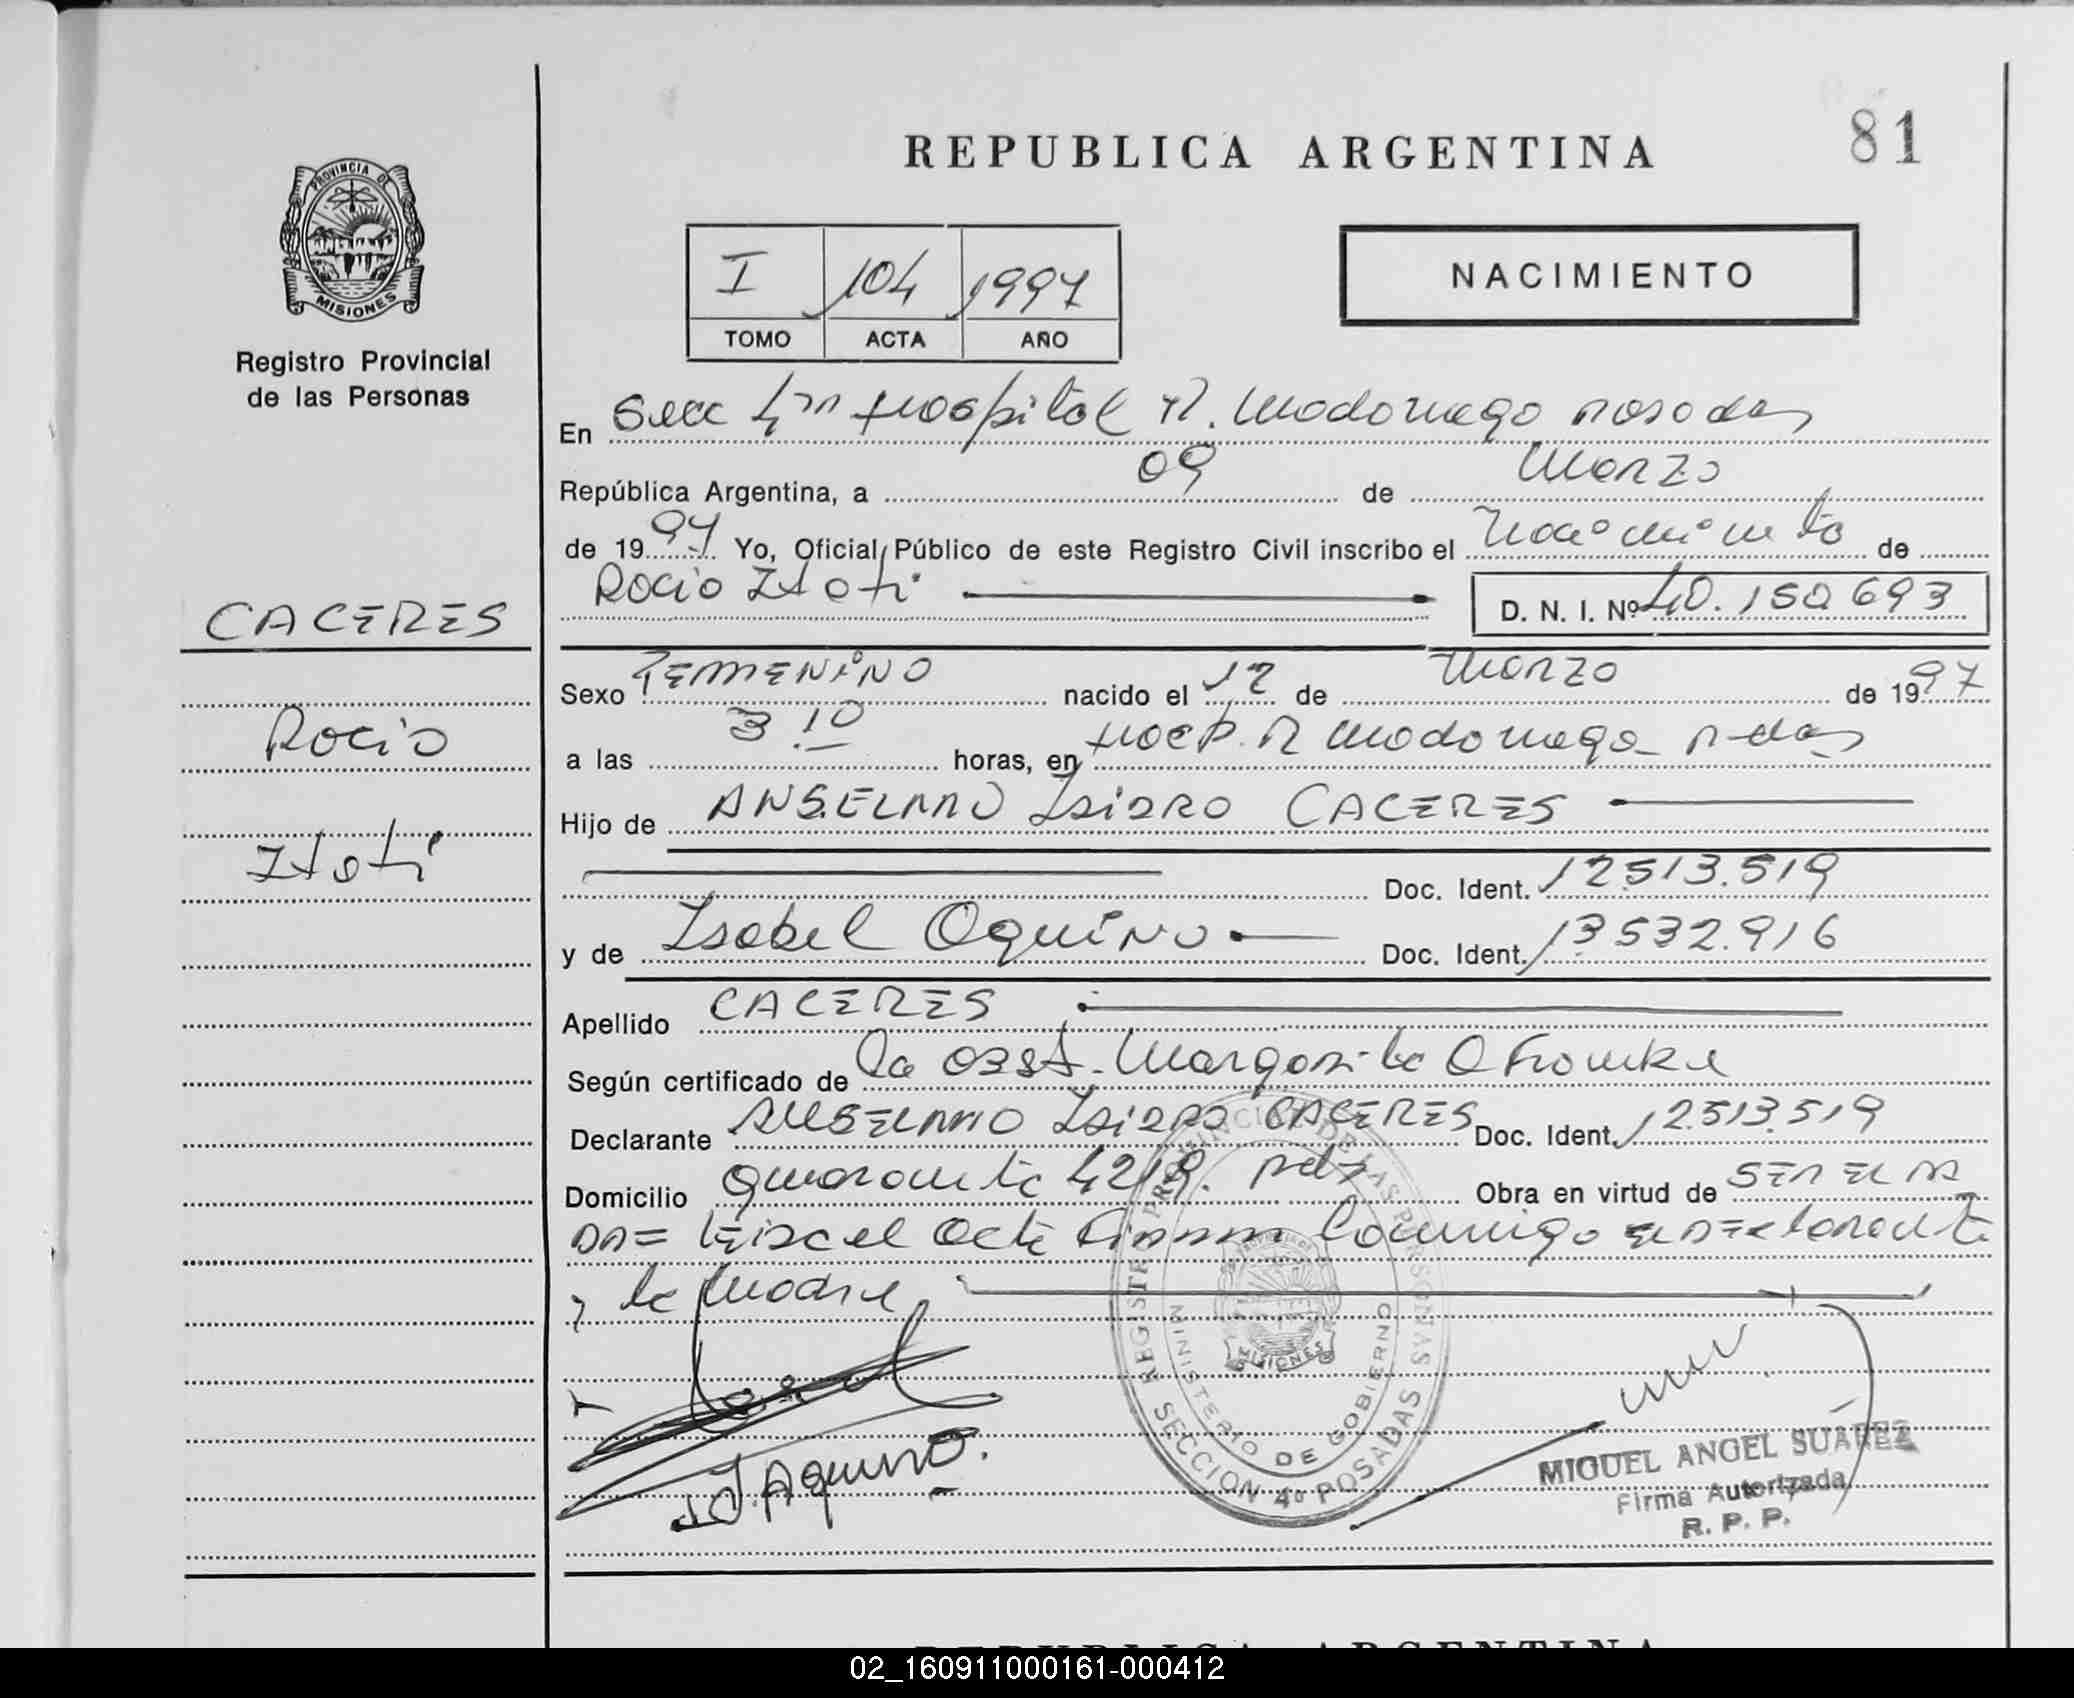 REPUBLICA ARGENTINA
81
PROVINCIA DE
MISIONES
Registro Provincial
de las Personas
I 104 1997
TOMO ACTA AÑO
NACIMIENTO
En Secc 4ta Hospital R. Madariaga Posadas
República Argentina, a 09 de Marzo
de 1997 Yo, Oficial Público de este Registro Civil inscribo el Nacimiento de
Rocio Itati
D. N. I. Nº 40.150693
CACERES
Rocio
Itati
Sexo FEMENINO nacido el 12 de Marzo de 1997
a las 3 10 horas, en Hosp. R Madariaga Pdas
Hijo de ANSELMO Isidro CACERES
Doc. Ident. 12513.519
y de Isabel Aquino Doc. Ident. 13532.916
Apellido CACERES
Según certificado de la Obst. Margarita
Declarante ANSELMO Isidro CACERES Doc. Ident. 12513.519
Domicilio 4218. Pdas Obra en virtud de SER EL PA
DRE Leida el Acta Firman Conmigo El Declarante
y la Madre
I. Aquino.
REGISTRO PROVINCIAL DE LAS PERSONAS
MINISTERIO DE GOBIERNO
MISIONES
SECCION 4º POSADAS
MIGUEL ANGEL SUAREZ
Firma Autorizada
R. P. P.
REPUBLICA ARGENTINA
02_160911000161-000412